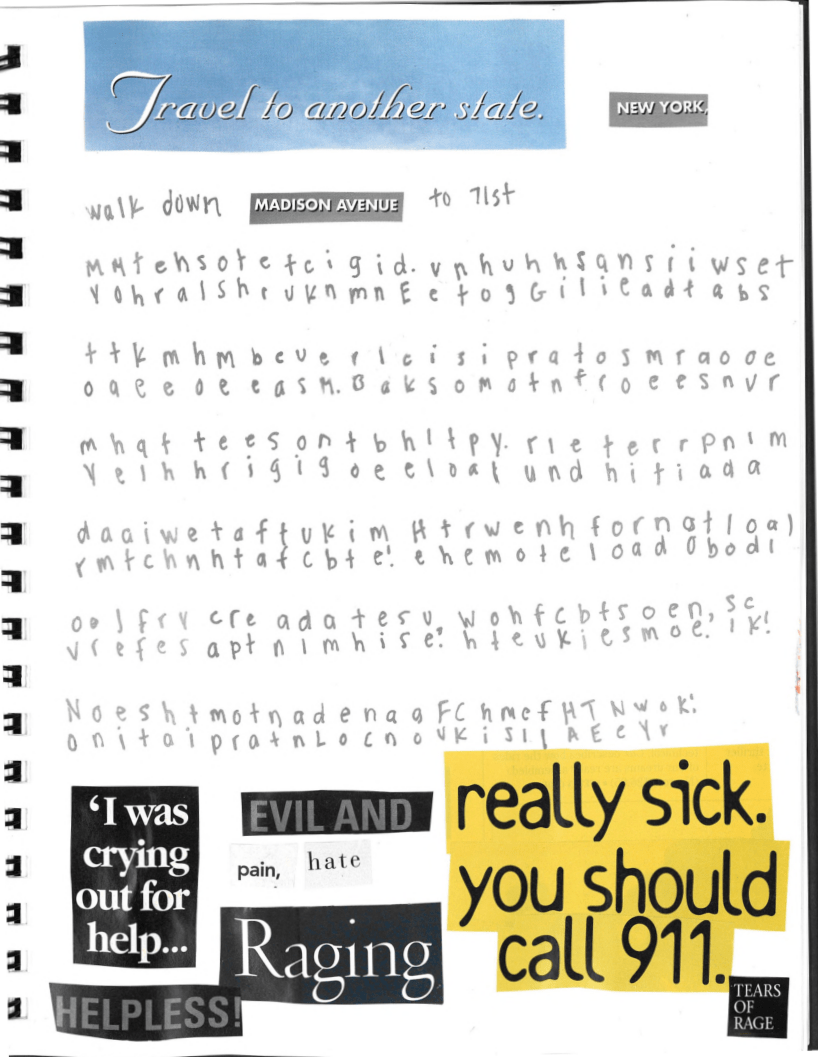 Travel to another state.
NEW YORK,
walk down MADISON AVENUE to 71st
MMtehsotetcigid. vnhuhhsqnsiiwset
Yohralshrukn mn Eetog Gilieadtabs
ttkmhmbcuerlcisipratosmraooe
oqeeoeeasM. Baksomotnfroeesnvr
mhqt teesontbhltpy. rle terrpnim
Yelhhrigigoeeloat und hitiada
daaiwetaftukim Htrwenh fornotloal
rmtchnhtafcbte! ehemote load Obodl
ooJfry cre adatesu, wohfcbtsoen, sc
vrefes apt nlmhise! hteukiesmoe. Ik!
Noeshtmotnadenaa FChmef HTNwok!
onitaipratnLocnoukisll AEeYr
'I was
crying
out for
help...
EVIL AND
pain,
hate
Raging
HELPLESS!
really sick.
you should
call 911.
TEARS
OF
RAGE